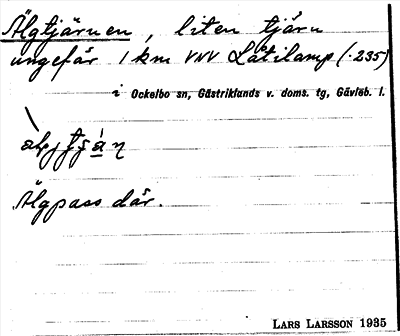 Älgtjärnen, liten tjärn
ungefär 1 km VNV Låtilamp (·235)
i Ockelbo sn, Gästriklands v. doms. tg, Gävleb. l.
Älgpass där.
LARS LARSSON 1935